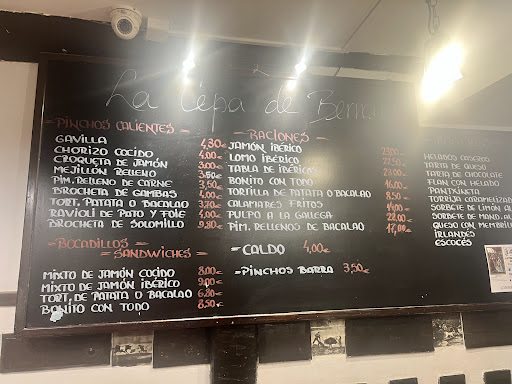 La Cepa de
-PINCHOS CALIENTES-
GAVILLA 4,80€
CHORIZO COCIDO 4,00€
CROQUETA DE JAMÓN 3,00€
MEJILLÓN RELLENO 3,50€
PIM. RELLENO DE CARNE 3,50€
BROCHETA DE GAMBAS 4,00€
TORT. PATATA O BACALAO 3,70€
RAVIOLI DE PATO Y FOIE 4,00€
BROCHETA DE SOLOMILLO 9,80€
-BOCADILLOS-
-SANDWICHES-
MIXTO DE JAMÓN COCIDO 8,00€
MIXTO DE JAMÓN IBÉRICO 9,00€
TORT. DE PATATA O BACALAO 6,80€
BONITO CON TODO 8,50€
-RACIONES-
JAMÓN IBÉRICO
LOMO IBÉRICO
TABLA DE IBÉRICOS
BONITO CON TODO 16,00€
TORTILLA DE PATATA O BACALAO 8,50€
CALAMARES FRITOS 14,00€
PULPO A LA GALLEGA 22,00€
PIM. RELLENOS DE BACALAO 17,00€
-CALDO 4,00€
-PINCHOS BARRA 3,50€
HELADOS CASEROS
TARTA DE QUESO
TARTA DE CHOCOLATE
FLAN CON HELADO
PANTXINETA
TORRIJA CARAMELIZAD
SORBETE DE LIMÓN AL
SORBETE DE MAND. AL
QUESO CON MEMBRIL
IRLANDES
ESCOCÉS